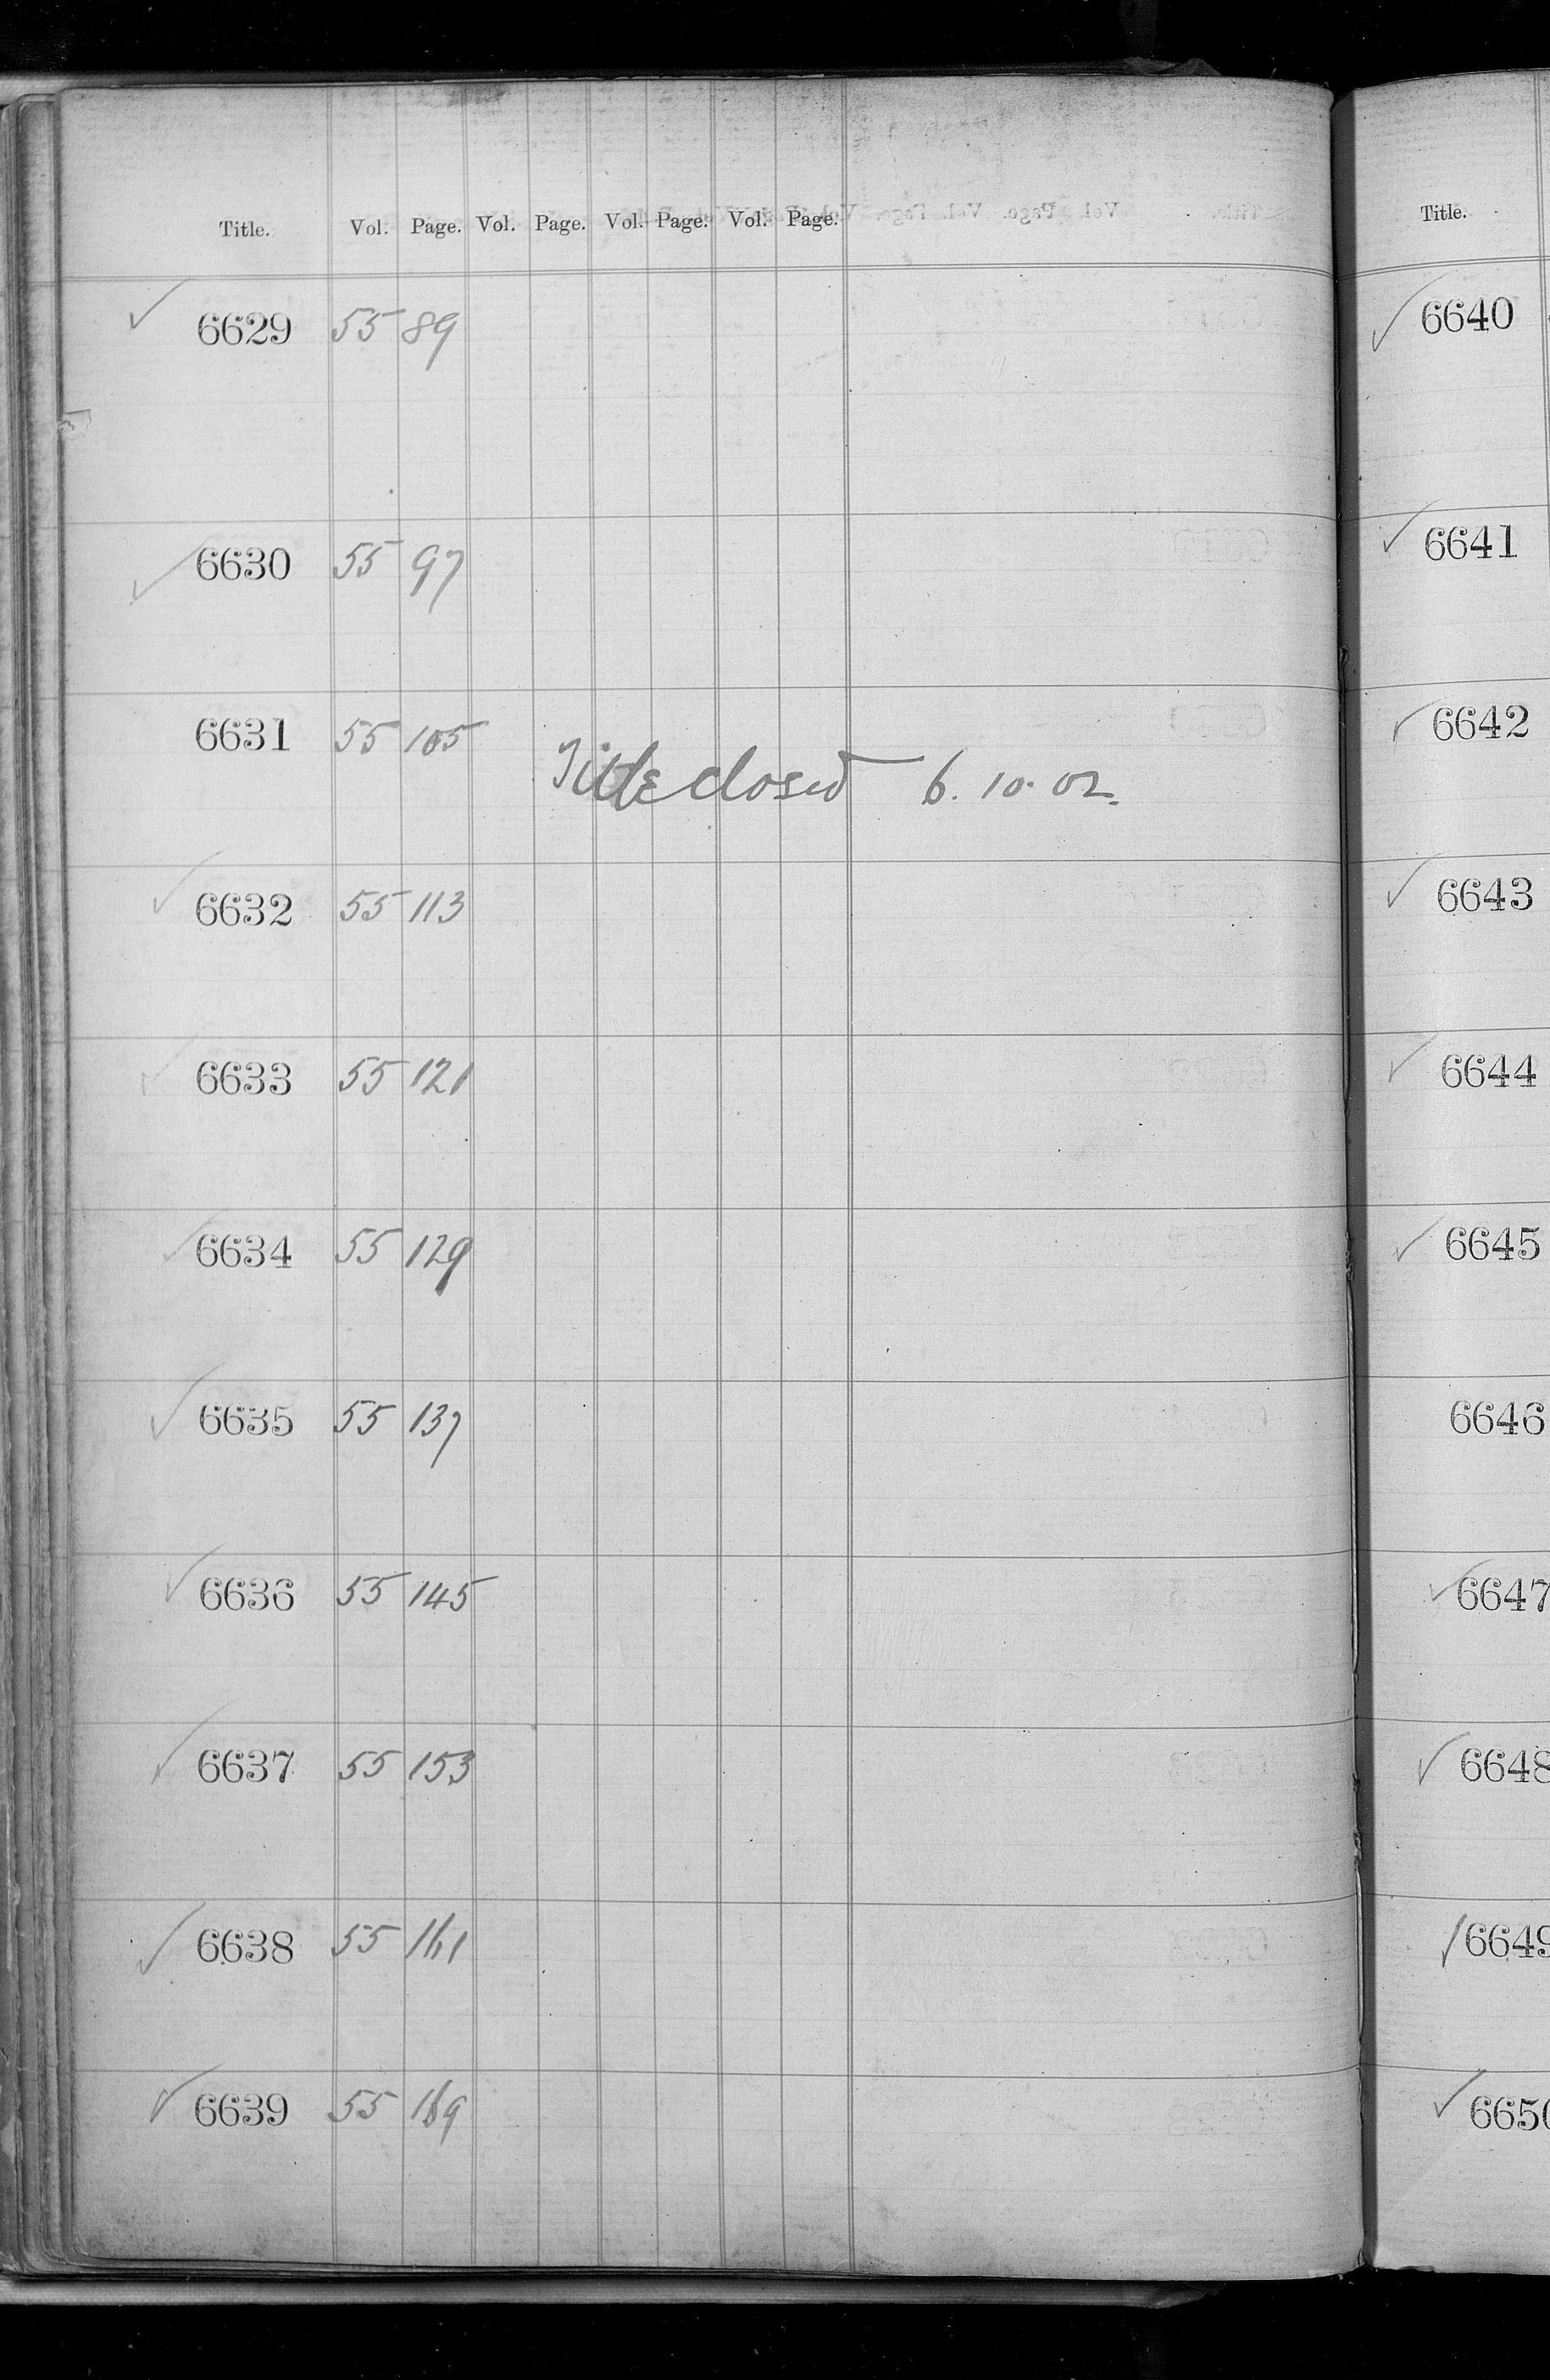 Title. Vol. Page. Vol. Page. Vol. Page. Vol. Page.
6629 55 89
6630 55 97
6631 55 105
Title closed 6. 10. 02.
6632 55 113
6633 55 121
6634 55 129
6635 55 137
6636 55 145
6637 55 153
6638 55 161
6639 55 169
Title.
6640
6641
6642
6643
6644
6645
6646
6647
6648
6649
6650